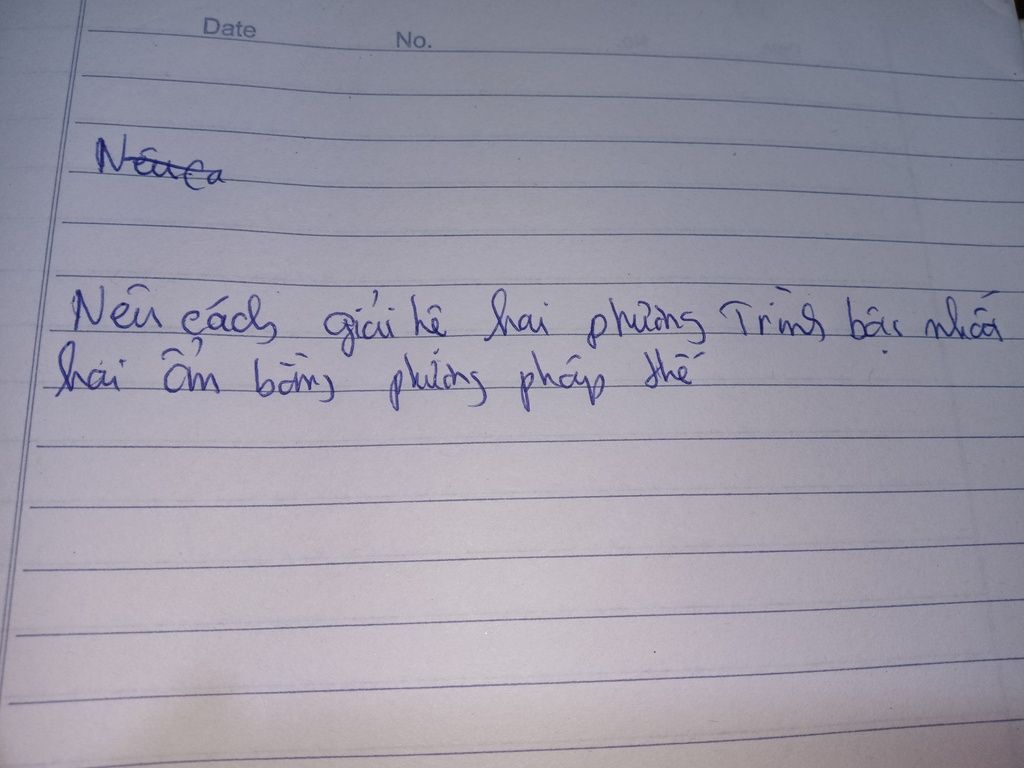 Date No.
Nêu ca
Nêu cách giải hệ hai phương Trình bậc nhất
hai ẩn bằng phương pháp thế